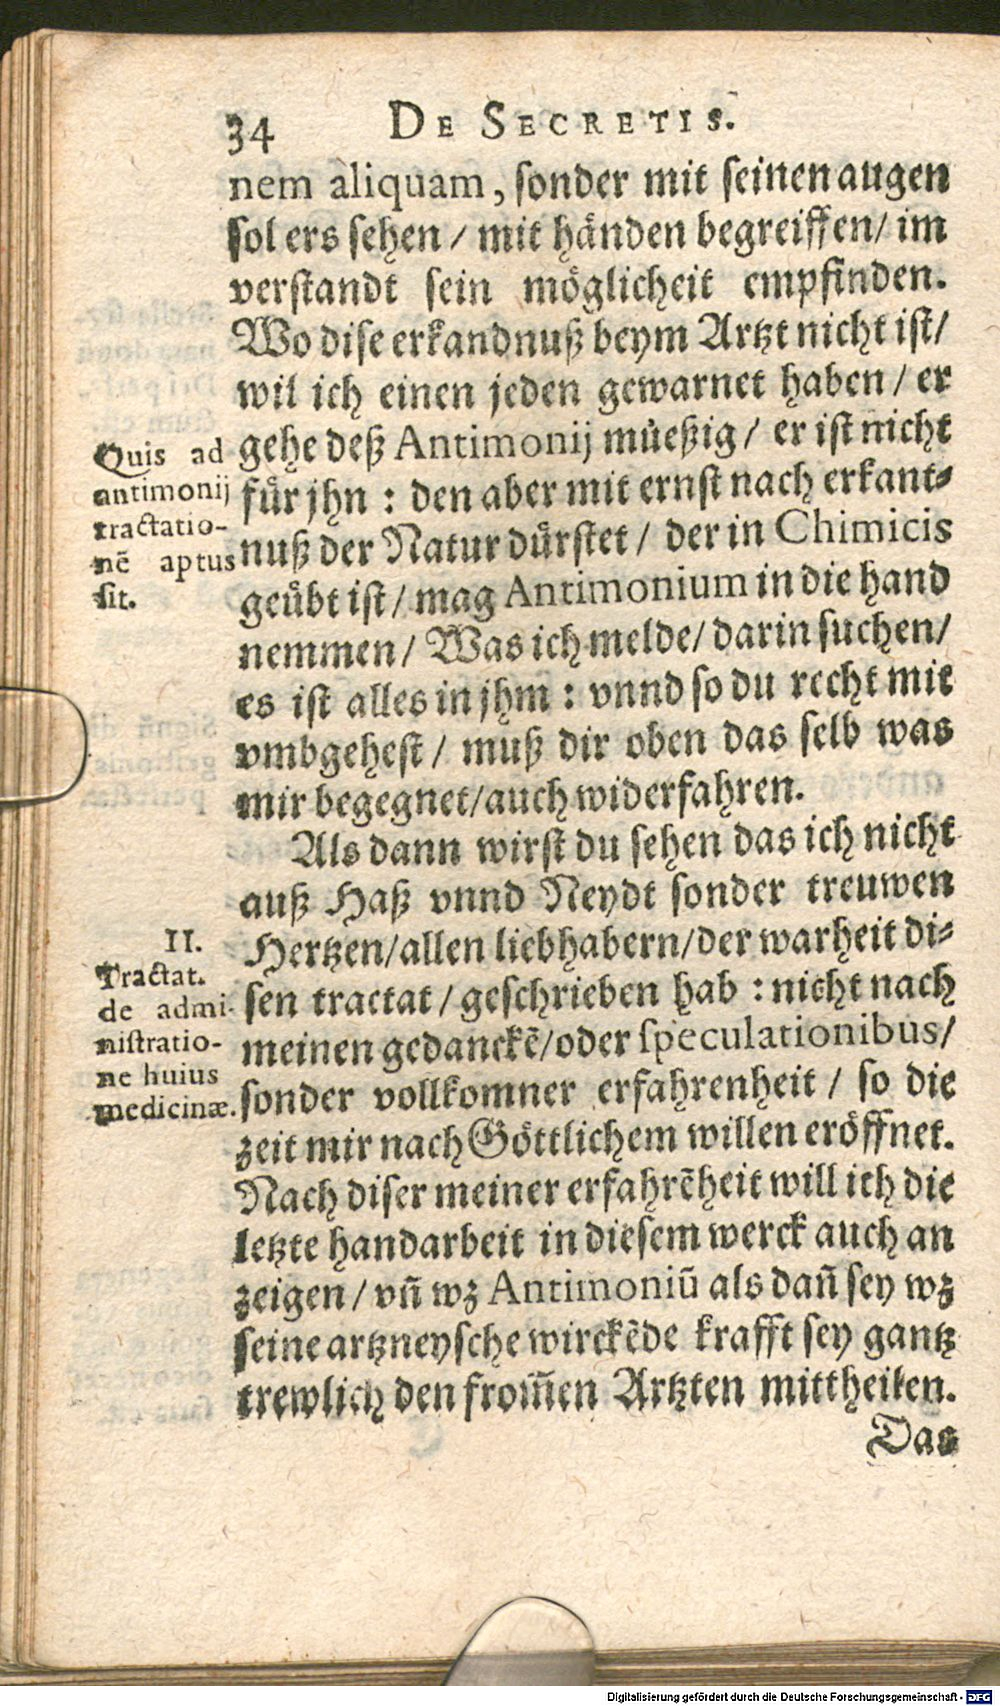 34 DE SECRETIS.
nem aliquam, ſonder mit ſeinen augen
ſol ers ſehen / mit haͤnden begreiffen/ im
verſtandt ſein moͤglicheit empfinden.
Wo diſe erkandnuß beym Artzt nicht iſt/
wil ich einen jeden gewarnet haben / er
gehe deß Antimonij muͤeßig / er iſt nicht
fuͤr jhn : den aber mit ernſt nach erkant⸗
nuß der Natur duͤrſtet / der in Chimicis
geuͤbt iſt / mag Antimonium in die hand
nemmen / Was ich melde/ darin ſuchen/
es iſt alles in jhm : vnnd ſo du recht mit
vmbgeheſt / muß dir oben das ſelb was
mir begegnet/auch widerfahren.
Quis ad
antimonij
tractatio-
nē aptus
ſit.
Als dann wirſt du ſehen das ich nicht
auß Haß vnnd Neydt ſonder treuwen
Hertzen/allen liebhabern/der warheit di⸗
ſen tractat / geſchrieben hab : nicht nach
meinen gedanckē/oder ſpeculationibus/
ſonder vollkomner erfahrenheit / ſo die
zeit mir nach Goͤttlichem willen eroͤffnet.
Nach diſer meiner erfahrēheit will ich die
letzte handarbeit in dieſem werck auch an
zeigen / vñ wz Antimoniū als dañ ſey wz
ſeine artzneyſche wirckēde krafft ſey gantz
trewlich den from̃en Artzten mittheilen.
II.
Tractat.
de admi-
niſtratio-
ne huius
medicinæ.
Das
Digitalisierung gefördert durch die Deutsche Forschungsgemeinschaft - DFG